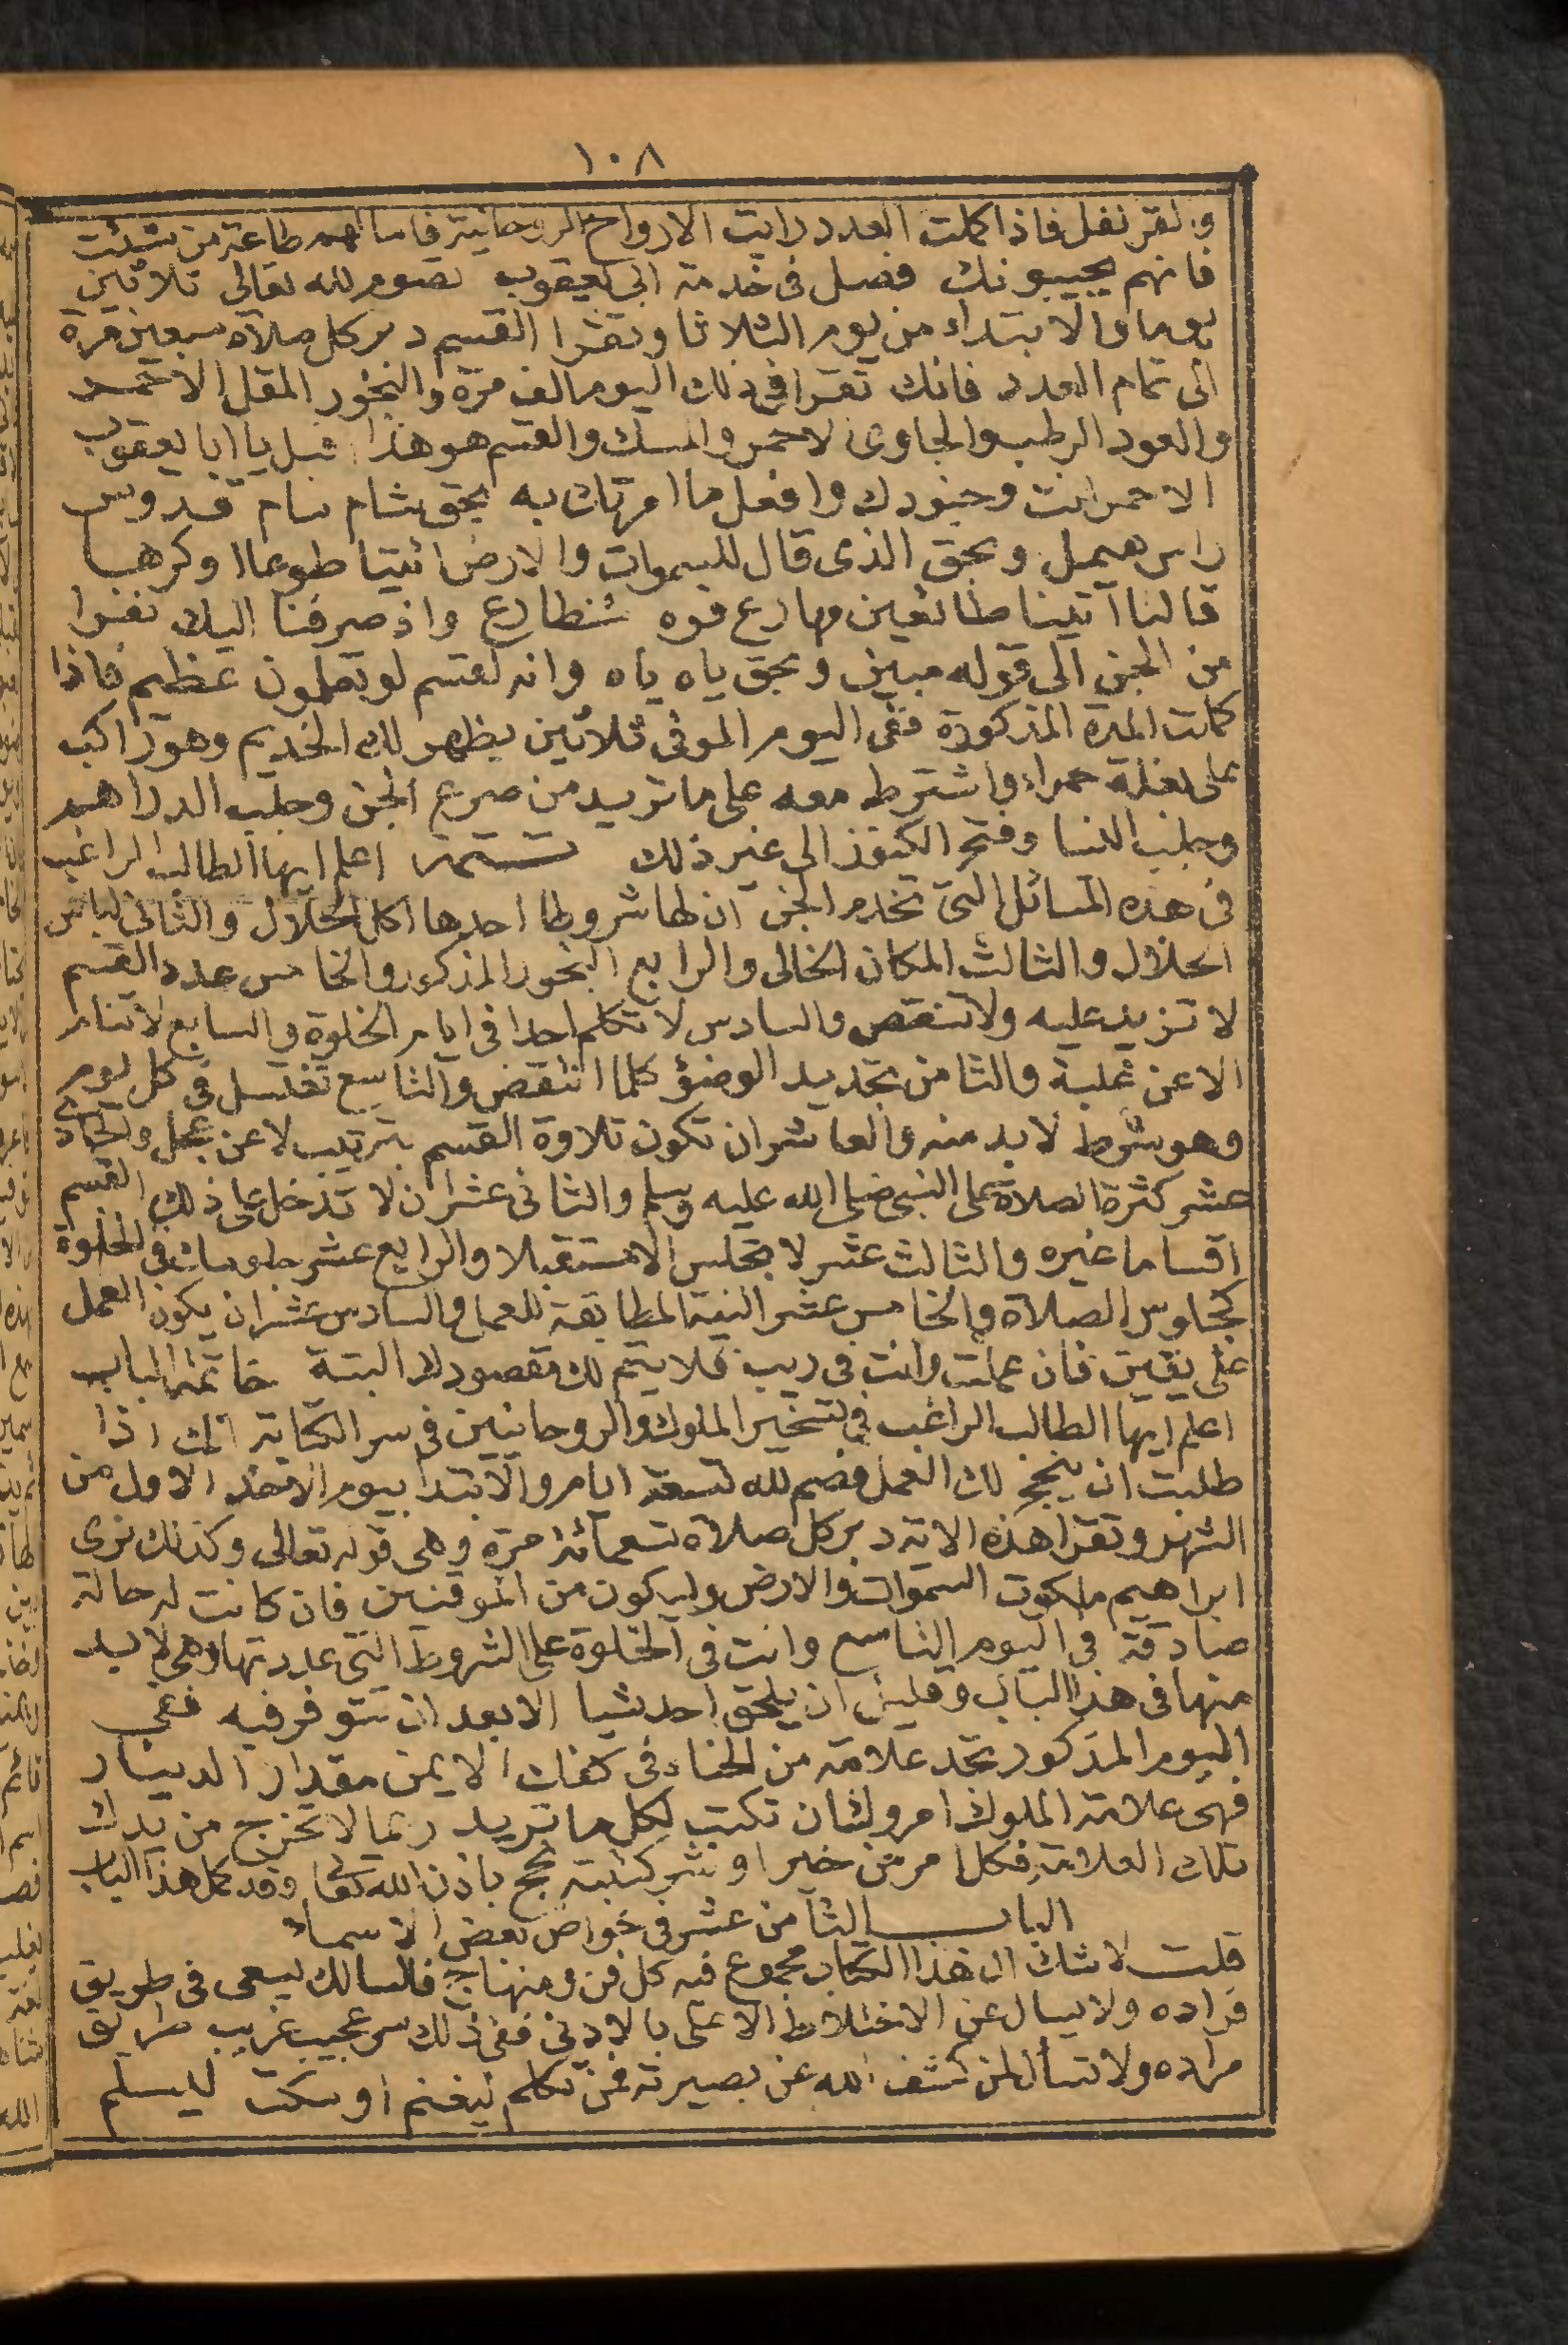 ١٠٨
والقرنفل فاذا كملت العدد رايت الارواح الروحانية فاسالهم طاعة من شئت
فانهم يجيبونك فصل فى خدمة ابى يعقوب تصوم لله تعالى ثلاثين
يوما والابتداء من يوم الثلاثا وتقرا القسم دبر كل صلاة سبعين مرة
الى تمام العدد فانك تقرا فى ذلك اليوم الف مرة والبخور المقل الاحمر
والعود الرطب والجاوى الاحمر والمسك والقسم هو هذا اقبل يا ابا يعقوب
الاحمر انت وجنودك وافعل ما امرتك به بحق شام سام قدوس
راس هميل وبحق الذى قال للسموات والارض ائتيا طوعا او كرها
قالتا آتينا طائعين مهارع قوه شنطارع واذ صرفنا اليك نفرا
من الجن الى قوله مبين وبحق ياه ياه وانه لقسم لو تعلمون عظيم فاذا
كملت المدة المذكورة ففى اليوم الموفى ثلاثين يظهر لك الخديم وهو راكب
على بغلة حمراء واشترط معه على ما تريد من صرع الجن وجلب الدراهم
وجلب النسا وفتح الكنوز الى غير ذلك تتمة اعلم ايها الطالب الراغب
فى هذه المسائل التى تخدم الجن ان لها شروطا احدها اكل الحلال والثانى لباس
الحلال والثالث المكان الخالى والرابع البخور المذكور والخامس عدد القسم
لا تزيد عليه ولا تنقص والسادس لا تكلم احدا فى ايام الخلوة والسابع لا تنام
الا عن غلبة والثامن تجديد الوضؤ كلما انتقض والتاسع تغتسل فى كل يوم
وهو شرط لا بد منه والعاشر ان تكون تلاوة القسم بترتيب لا عن عجل والحادى
عشر كثرة الصلاة على النبى صلى الله عليه وسلم والثانى عشر ان لا تدخل على ذلك القسم
اقساما غيره والثالث عشر لا تجلس الا مستقبلا والرابع عشر جلوسك فى الخلوة
كجلوس الصلاة والخامس عشر النية المطابقة للعمل والسادس عشر ان يكون العمل
على يقين فان عملت وانت فى ريب فلا يتم لك مقصودك البتة خاتمة الباب
اعلم ايها الطالب الراغب فى تسخير الملوك والروحانيين فى سر الكتابة انك اذا
طلبت ان ينجح لك العمل فصم لله تسعة ايام والابتدا بيوم الاحد الاول من
الشهر وتقرا هذه الاية دبر كل صلاة تسعمائة مرة وهى قوله تعالى وكذلك نرى
ابراهيم ملكوت السموات والارض وليكون من الموقنين فان كانت له حالة
صادقة فى اليوم التاسع وانت فى الخلوة على الشروط التى عددتها وهى لا بد
منها فى هذا الباب وقليل ان يلحق احد شيا الا بعد ان تتوفر فيه ففى
اليوم المذكور تجد علامة من الحناء فى كفك الايمن مقدار الدينار
فهى علامة الملوك امروك ان تكتب لكل ما تريد ربما لا تخرج من يدك
تلك العلامة فكل امر من خير او شر كتبته نجح باذن الله تعالى وقد كمل هذا الباب
الباب الثامن عشر فى خواص بعض الاسماء
قلت لا شك ان هذا الكتاب مجموع فيه كل فن ومنهاج فالسالك ليسعى فى طريق
مراده ولا يسال عن الاختلاط الاعلى بالادنى ففى ذلك سر عجيب غريب طريق
مراده ولا تسأل لمن كشف الله عن بصيرته فمن تكلم ليغنم او سكت ليسلم